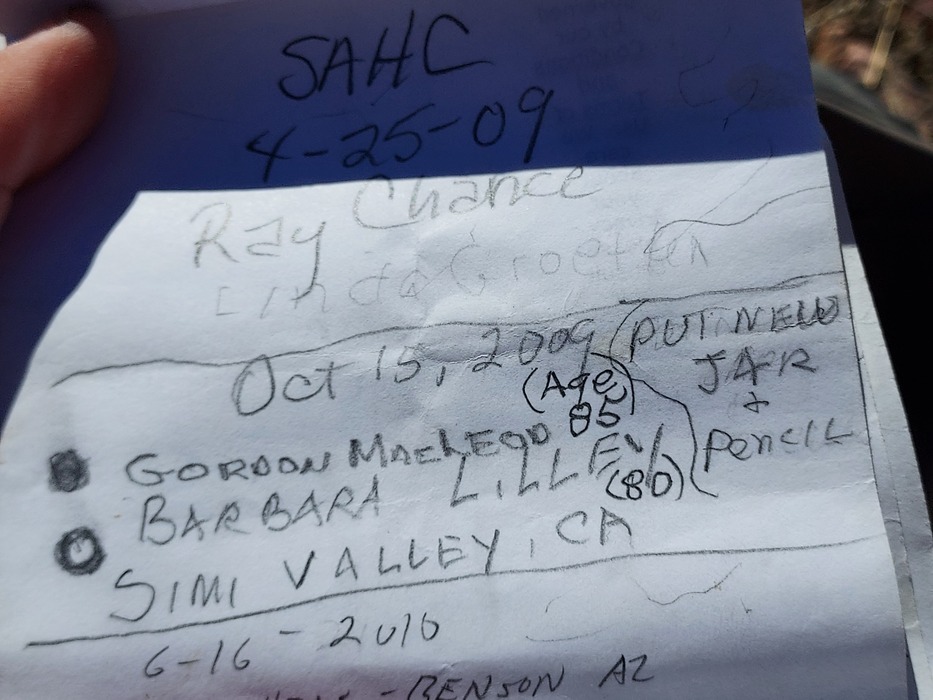 SAHC
4-25-09
Ray Chance
Linda
Oct 15, 2009 (PUT NEW
JAR
+
PENCIL
(Age)
85
GORDON MACLEOD
BARBARA LILLEY
(80)
SIMI VALLEY, CA
6-16-2010
- BENSON AZ